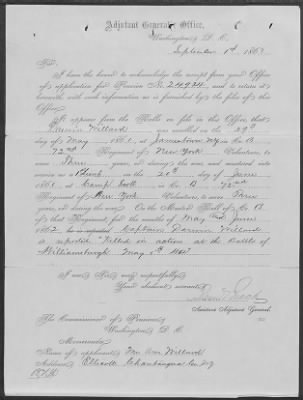 Adjutant General's Office,
Washington, D. C.
September 1st 1863
Sir:
I have the honor to acknowledge the receipt from your Office
of application for Pension No. 24924, and to return it
herewith, with such information as is furnished by the files of this
Office.
It appears from the Rolls on file in this Office, that
Darwin Willard was enrolled on the 29th
day of May 1861, at Jamestown N.Y. in Co. B
72nd Regiment of New York Volunteers, to
serve Three years, or during the war, and mustered into
service as a 1st Lieut on the 20th day of June
1861, at Camp Scott in Co. B, 72nd
Regiment of New York Volunteers, to serve Three
years, or during the war. On the Muster Roll of Co. B
of that Regiment, for the months of May and June
1862, he is reported Captain Darwin Willard
is reported "Killed in action at the Battle of
Williamsburgh May 5th 1862"
I am, Sir, very respectfully,
Your obedient servant,
Assistant Adjutant General.
The Commissioner of Pensions,
Washington, D. C.
Memoranda:
Name of applicant, Willard
Address, Ellicott Chautauqua Co. N.Y.